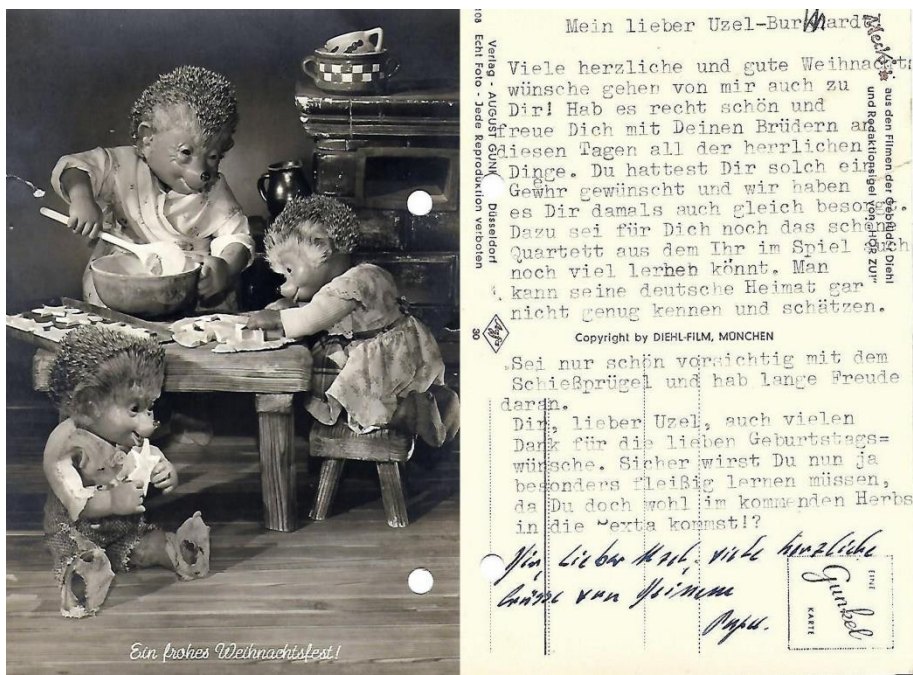 Ein frohes Weihnachtsfest!
Mein lieber Uzel-Burkhardt!
Viele herzliche und gute Weihnachts
wünsche gehen von mir auch zu
Dir! Hab es recht schön und
freue Dich mit Deinen Brüdern an
diesen Tagen all der herrlichen
Dinge. Du hattest Dir solch ein
Gewhr gewünscht und wir haben
es Dir damals auch gleich besorgt.
Dazu sei für Dich noch das schöne
Quartett aus dem Ihr im Spiel auch
noch viel lerheb könnt. Man
kann seine deutsche Heimat gar
nicht genug kennen und schätzen.
Copyright by DIEHL-FILM, MÜNCHEN
Sei nur schön vorsichtig mit dem
Schießprügel und hab lange Freude
daran.
Dir, lieber Uzel, auch vielen
Dank für die lieben Geburtstags=
wünsche. Sicher wirst Du nun ja
besonders fleißig lernen müssen,
da Du doch wohl im kommenden Herbs
in die exta kommst!?
Dir, lieber Uzel, viele herzliche
Grüße von Deinem
Verlag - AUGUST GUNK Düsseldorf
108 Echt Foto - Jede Reproduktion verboten
30
Agfa
Mecki
aus den Filmen der Gebrüder Diehl
und Redaktionsigel von "HÖR ZU!"
EINE
Gunkel
KARTE